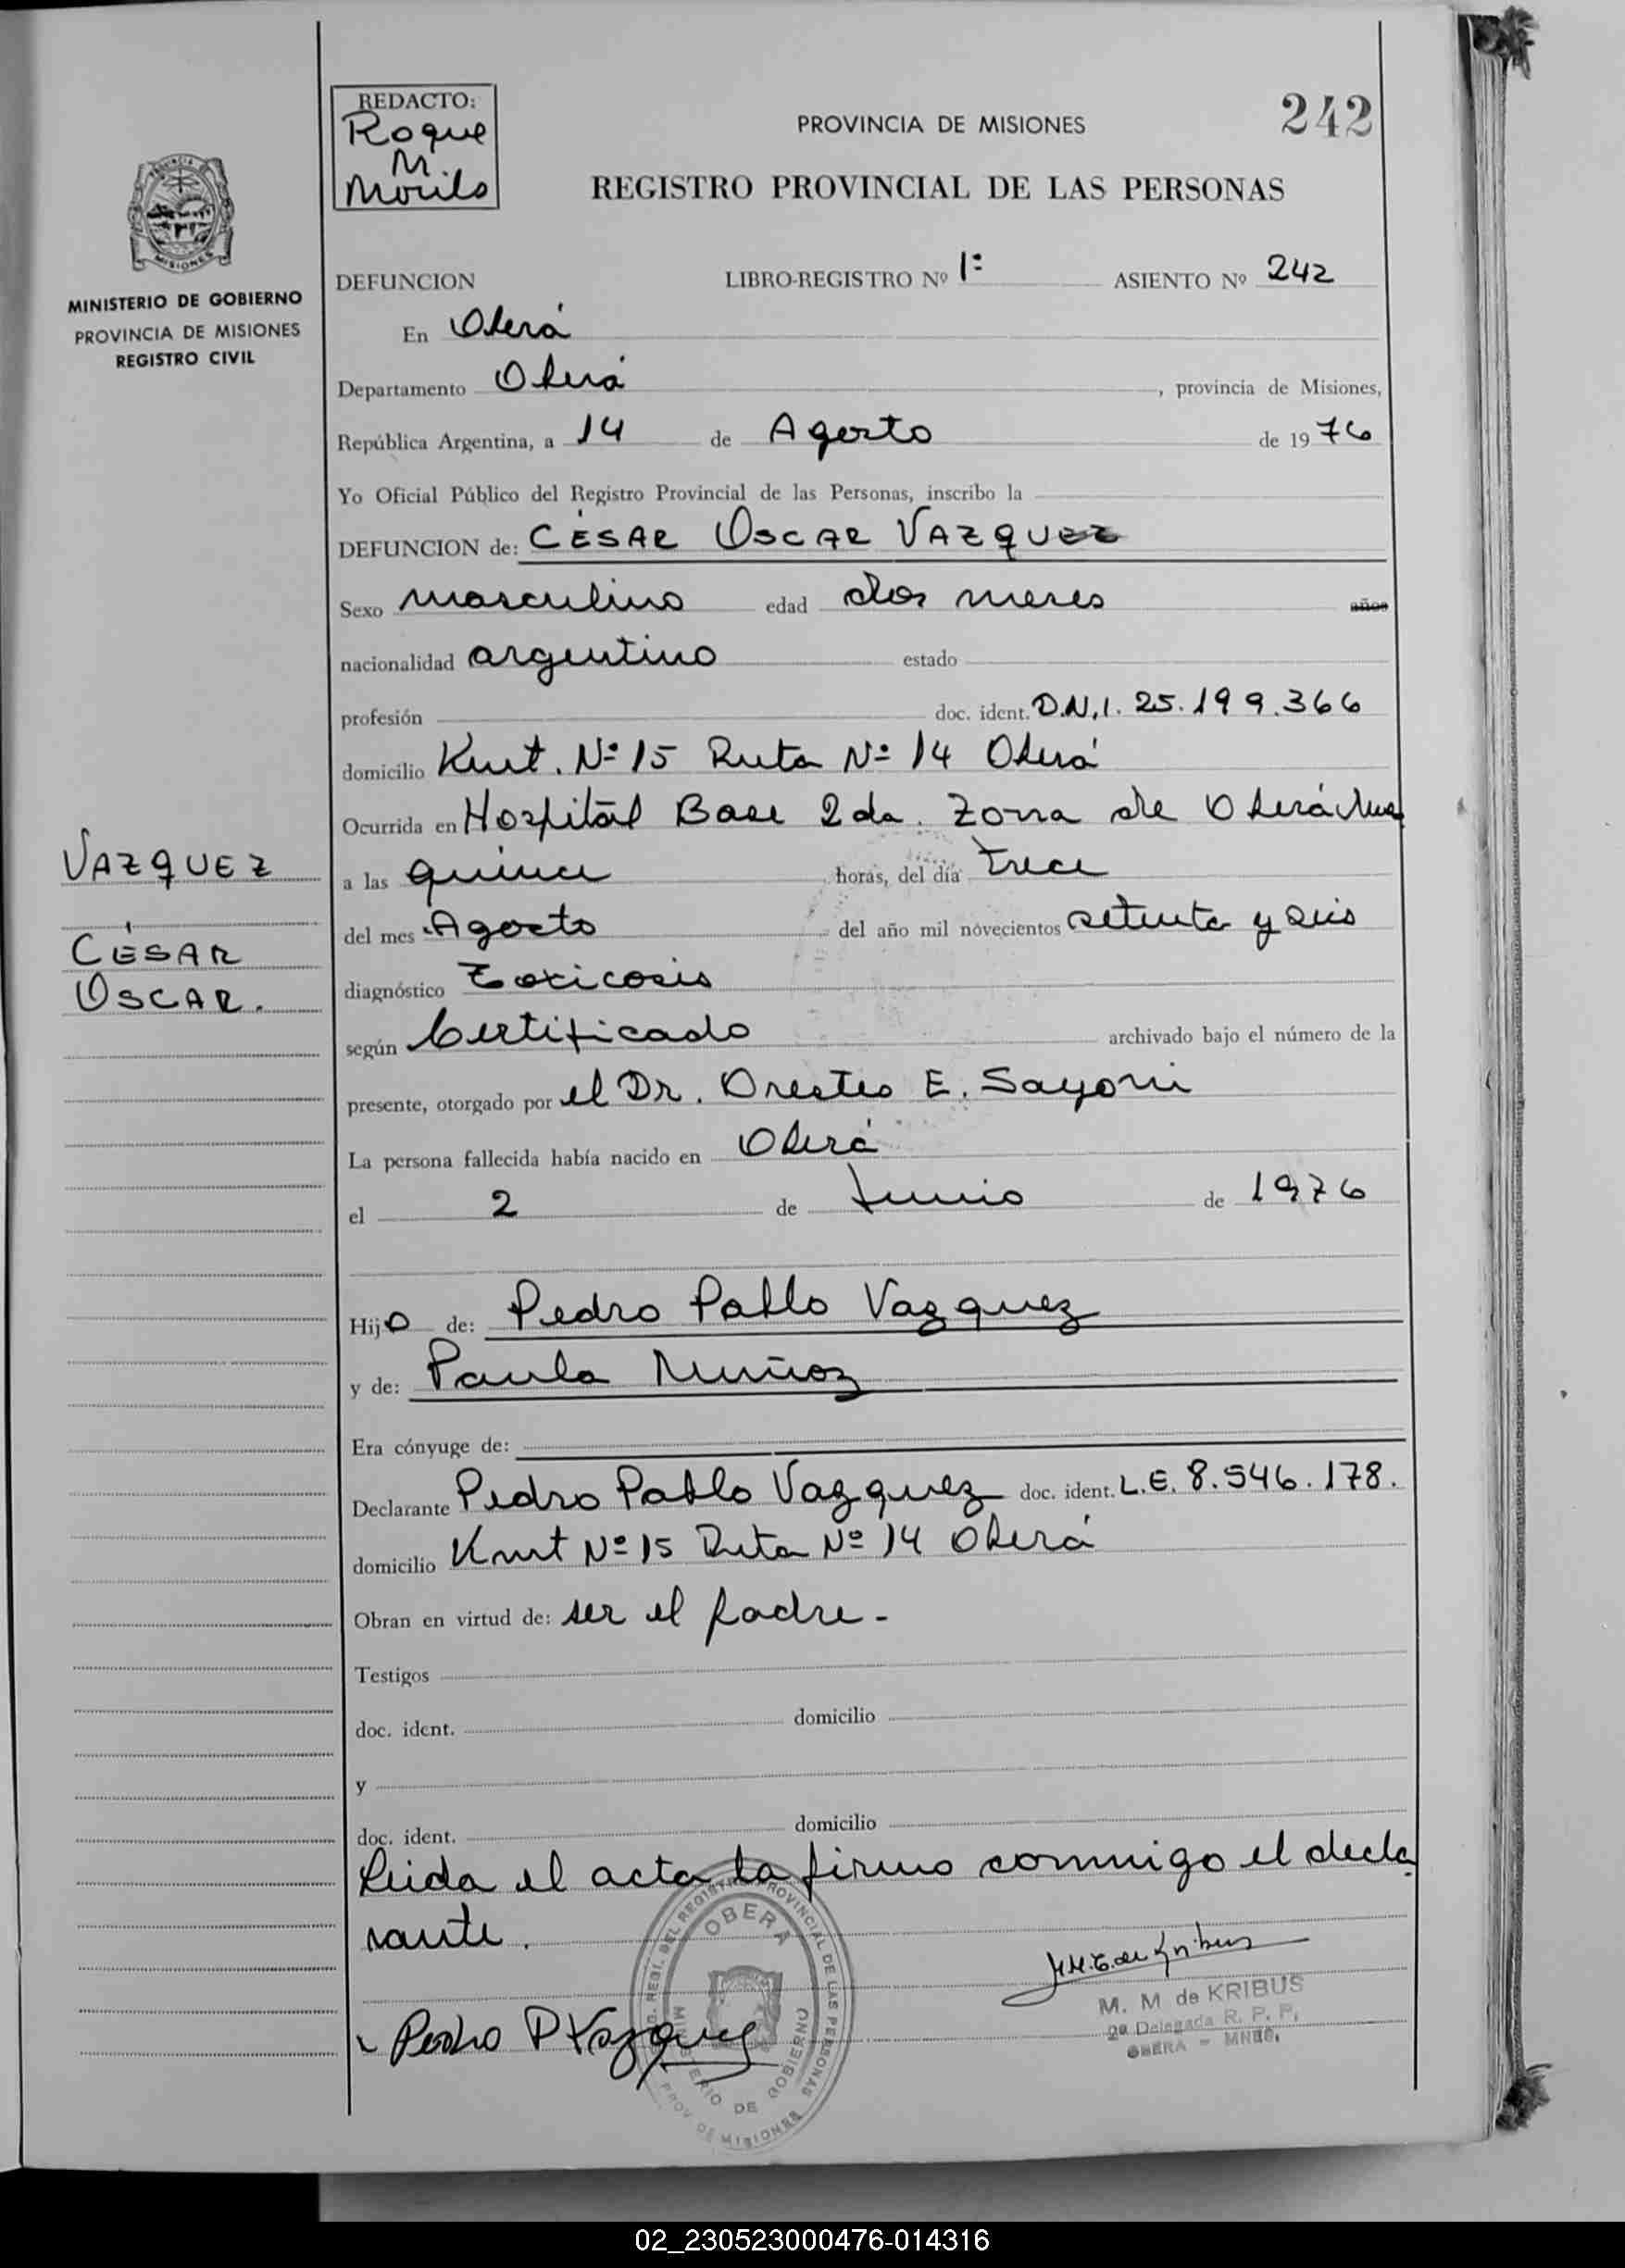 REDACTO:
Roque
M.
Morilo
PROVINCIA DE MISIONES
242
REGISTRO PROVINCIAL DE LAS PERSONAS
PROVINCIA
MISIONES
MINISTERIO DE GOBIERNO
PROVINCIA DE MISIONES
REGISTRO CIVIL
DEFUNCION LIBRO-REGISTRO Nº 1º ASIENTO Nº 242
En Oberá
Departamento Oberá, provincia de Misiones,
República Argentina, a 14 de Agosto de 1976
Yo Oficial Público del Registro Provincial de las Personas, inscribo la
DEFUNCION de: CÉSAR OSCAR VAZQUEZ
Sexo masculino edad dos meses años
nacionalidad argentino estado
profesión doc. ident. D.N.I. 25.199.366
domicilio Kmt. Nº 15 Ruta Nº 14 Oberá
Ocurrida en Hospital Base 2da. Zona de Oberá Mnes
a las quince horas, del día trece
del mes Agosto del año mil novecientos setenta y seis
diagnóstico Toxicosis
según Certificado archivado bajo el número de la
presente, otorgado por el Dr. Orestes E. Sayoni
La persona fallecida había nacido en Oberá
el 2 de Junio de 1976
Hijo de: Pedro Pablo Vazquez
y de: Paula Muñoz
Era cónyuge de:
Declarante Pedro Pablo Vazquez doc. ident. L.E. 8.546.178.
domicilio Kmt Nº 15 Ruta Nº 14 Oberá
Obran en virtud de: ser el padre -
Testigos
doc. ident. domicilio
y
doc. ident. domicilio
Leida el acta la firma conmigo el decla
rante.
VAZQUEZ
CÉSAR
OSCAR.
Pedro P Vazquez
OBERA
MINISTERIO DE GOBIERNO
PROV. DE MISIONES
M. M de KRIBUS
2ª Delegada R. P. P.
OBERA - MNES.
02_230523000476-014316